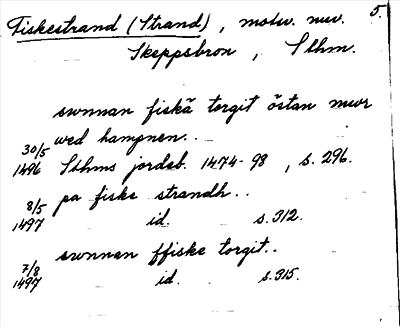 Fiskestrand (Strand), motsv. nuv. 5.
Skeppsbron, Sthm.
swnnan fiskã torgit östan mwr
wed hampnen..
30/5 1496 Sthms jordeb. 1474-98, s. 296.
pa fiske strandh..
8/5 1497 id. s. 312.
swnnan ffiske torgit..
7/8 1497 id. s. 315.